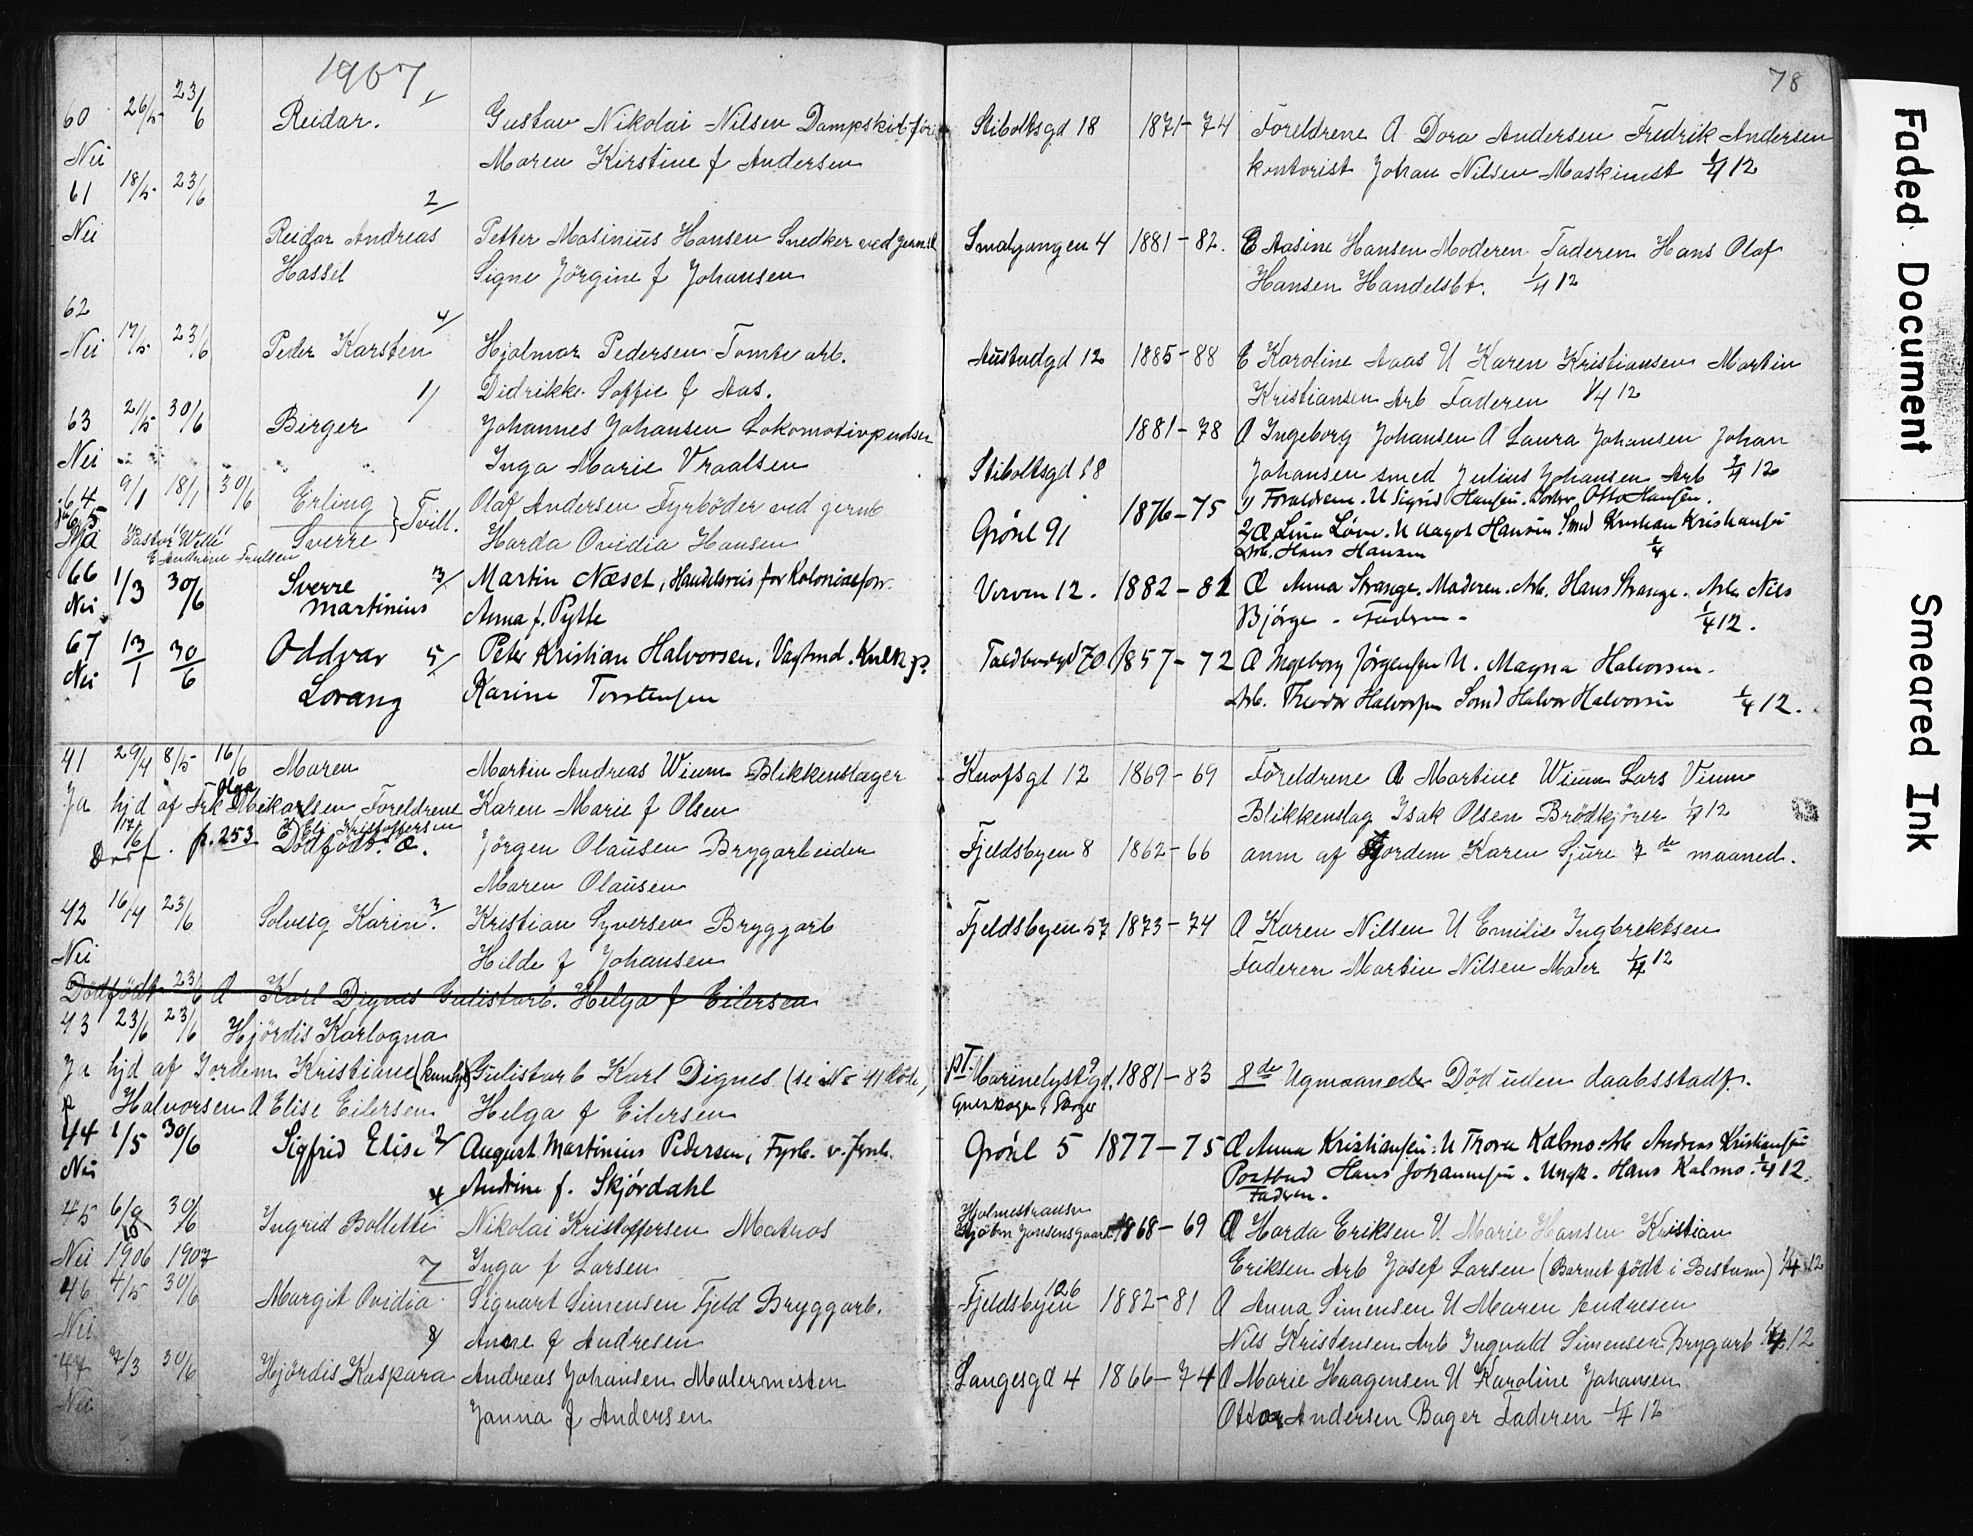 1907
78
60 26/5 23/6 Reidar. 1/ Gustav Nikolai Nilsen Dampskibsfør. Stiboltsgd 18 1871-74 Foreldrene A Dora Andersen Fredrik Andersen
Nei Maren Kirstine f Andersen kontorist Johan Nilsen Maskinist 1/4 12
61 18/5 23/6 2/
Nei Reidar Andreas Petter Masinius Hansen Snedker ved jernb. Smalgangen 4 1881-82. E Aasine Hansen Moderen Faderen Hans Olaf
Hassel Signe Jörgine f Johansen Hansen Handelsbt. 1/4 12
62 4/
Nei 17/5 23/6 Peder Karsten Hjalmar Pedersen Tomtearb. Austadgd 12 1885-88 E Karoline Aaas U Karen Kristiansen Martin
1/ Didrikke Soffie f Aas. Kristiansen Arb Faderen 1/4 12
63 21/5 30/6 Birger Johannes Johansen Lokomotivpudser 1881-78 A Ingeborg Johansen A Laura Johansen Johan
Nei Inga Marie Vraalsen Stiboltsgd 18 Johansen smed Julius Johansen Arb 1/4 12
64 9/1 18/1 30/6 Erling } Tvill. Olaf Andersen Fyrböder ved jernb Grönl 91 1876-75 1) Forældrene. U Sigrid Hansen. Otto Hansen.
65 Sverre Harda Ovidia Hansen 2) Æ Lina Löve. U Aagot Hansen. Smed Kristian Kristiansen
Ja Pastor Wille Arb. Hans Hansen 1/4
66 1/3 30/6 Sverre 3/ Martin Næset, Handelsreis for Kolonialforr. Verven 12. 1882-81 Æ Anna Strange. Moderen. Arb. Hans Strange. Arb. Nils
Nei Martinius Anna f. Pytte Bjørge. Faderen. 1/4 12.
67 13/1 30/6 Oddvar 5/ Peter Kristian Halvorsen, Vagtmd. Toldbodgd 70 1857-72 Æ Ingeborg Jørgensen U. Magna Halvorsen.
Nei Lorang Karine Torstensen Arb. Theodor Halvorsen Smed Halvor Halvorsen 1/4 12.
41 29/4 8/5 16/6 Maren Martin Andreas Wium Blikkenslager Knofsgt 12 1869-69 Foreldrene A Martine Wium Lars Vium
Ja hjd af Frk Olga Mikarlsen Foreldrene Karen Marie f Olsen Blikkenslag Isak Olsen Brödkjörer 1/4 12
17/6 E) Eli Kristoffersen
p. 253 Dödfödt. Æ. Jörgen Olausen Brygarbeider Fjeldsbyen 8 1862-66 anm af Jordem Karen Sjure 7de maaned.
Maren Olausen
42 16/4 23/6 Solveig Karin. 3/ Kristian Syversen Bryggarb Fjeldsbyen 57 1873-74 A Karen Nilsen U Emilie Ingbrektsen
Nei Hilde f Johansen Faderen Martin Nilsen Maler 1/4 12
Dödfödt 23/6 A Karl Dignes Gulistarb. Helga f Eilersen
43 23/6 23/6 Hjördis Karlagna
Ja hjd af Jordem Kristiane Gulistarb Karl Dignes (se No 41 döde) pT. Marinelystgd. 1881-83 8de Ugmaaneder Död uden daabsstadf.
Halvorsen A Elise Eilersen Helga f Eilersen
44 1/5 30/6 Sigfrid Elise 2/ August Martinius Pedersen, Fyrb. v. Jernb. Grönl 5 1877-75 Æ Anna Kristiansen. U Thora Kalmo Arb Andreas Kristiansen
Nei Andrine f. Skjördahl Postbud Hans Johannesen. Ungk. Hans Kalmo. 1/4 12.
4/ Faderen.
45 6/9 30/6 Ingrid Bollette Nikolai Kristoffersen Matros Holmestransn Jensensgaard 1868-69 A Harda Eriksen U Marie Hansen Kristian
Nei 1906 1907 7 Inga f Larsen Eriksen Arb Josef Larsen (Barnet födt i Bestum) 1/4 12
46 4/5 30/6 Margit Ovidia Sigvart Simensen Fjeld Bryggarb. Fjeldsbyen 126 1882-81 A Anna Simensen U Maren Andresen
Nei 8/ Anne f Andresen Nils Kristensen Arb Ingvald Simensen Brygarb 1/4 12
47 7/3 30/6 Hjördis Kaspara Andreas Johansen Malermester Langesgd 4 1866-74 A Marie Haagensen U Karoline Johansen
Nei Janna f Andersen Ottar Andersen Bager Faderen 1/4 12
Faded Document
Smeared Ink